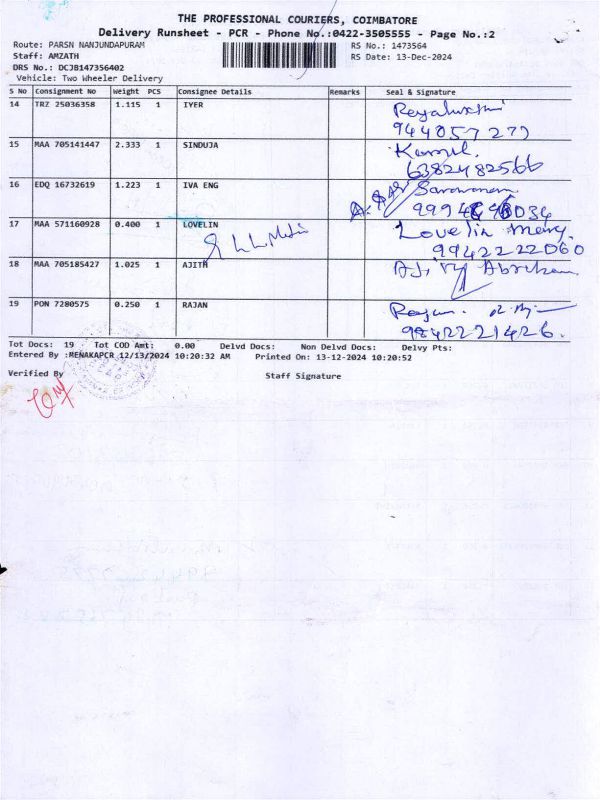 THE PROFESSIONAL COURIERS, COIMBATORE
Delivery Runsheet - PCR - Phone No.:0422-3505555 - Page No.:2
Route: PARSN NANJUNDAPURAM RS No.: 1473564
Staff: AMZATH RS Date: 13-Dec-2024
DRS No.: DCJB147356402
Vehicle: Two Wheeler Delivery
S No Consignment No Weight PCS Consignee Details Remarks Seal & Signature
14 TRZ 25036358 1.115 1 IYER
944057277
15 MAA 705141447 2.333 1 SINDUJA
6382482566
16 EDQ 16732619 1.223 1 IVA ENG Saravanan
17 MAA 571160928 0.400 1 LOVELIN Lovelin mercy
9942222060
18 MAA 705185427 1.025 1 AJITH
19 PON 7280575 0.250 1 RAJAN Rajan
9842221426.
Tot Docs: 19 Tot COD Amt: 0.00 Delvd Docs: Non Delvd Docs: Delvy Pts:
Entered By :MENAKAPCR 12/13/2024 10:20:32 AM Printed On: 13-12-2024 10:20:52
Verified By Staff Signature